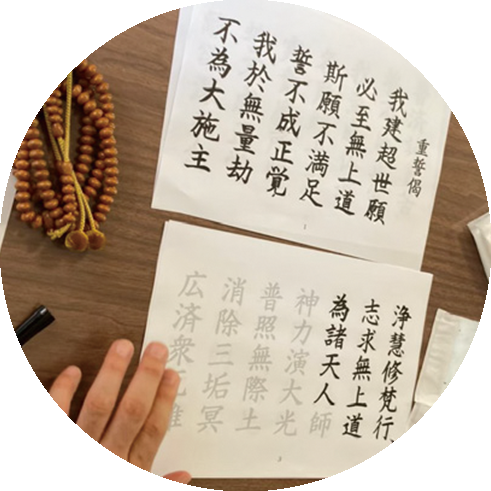 重誓偈
我建超世願
必至無上道
斯願不満足
誓不成正覚
我於無量劫
不為大施主
浄慧修梵行
志求無上道
為諸天人師
神力演大光
普照無際土
消除三垢冥
広済衆